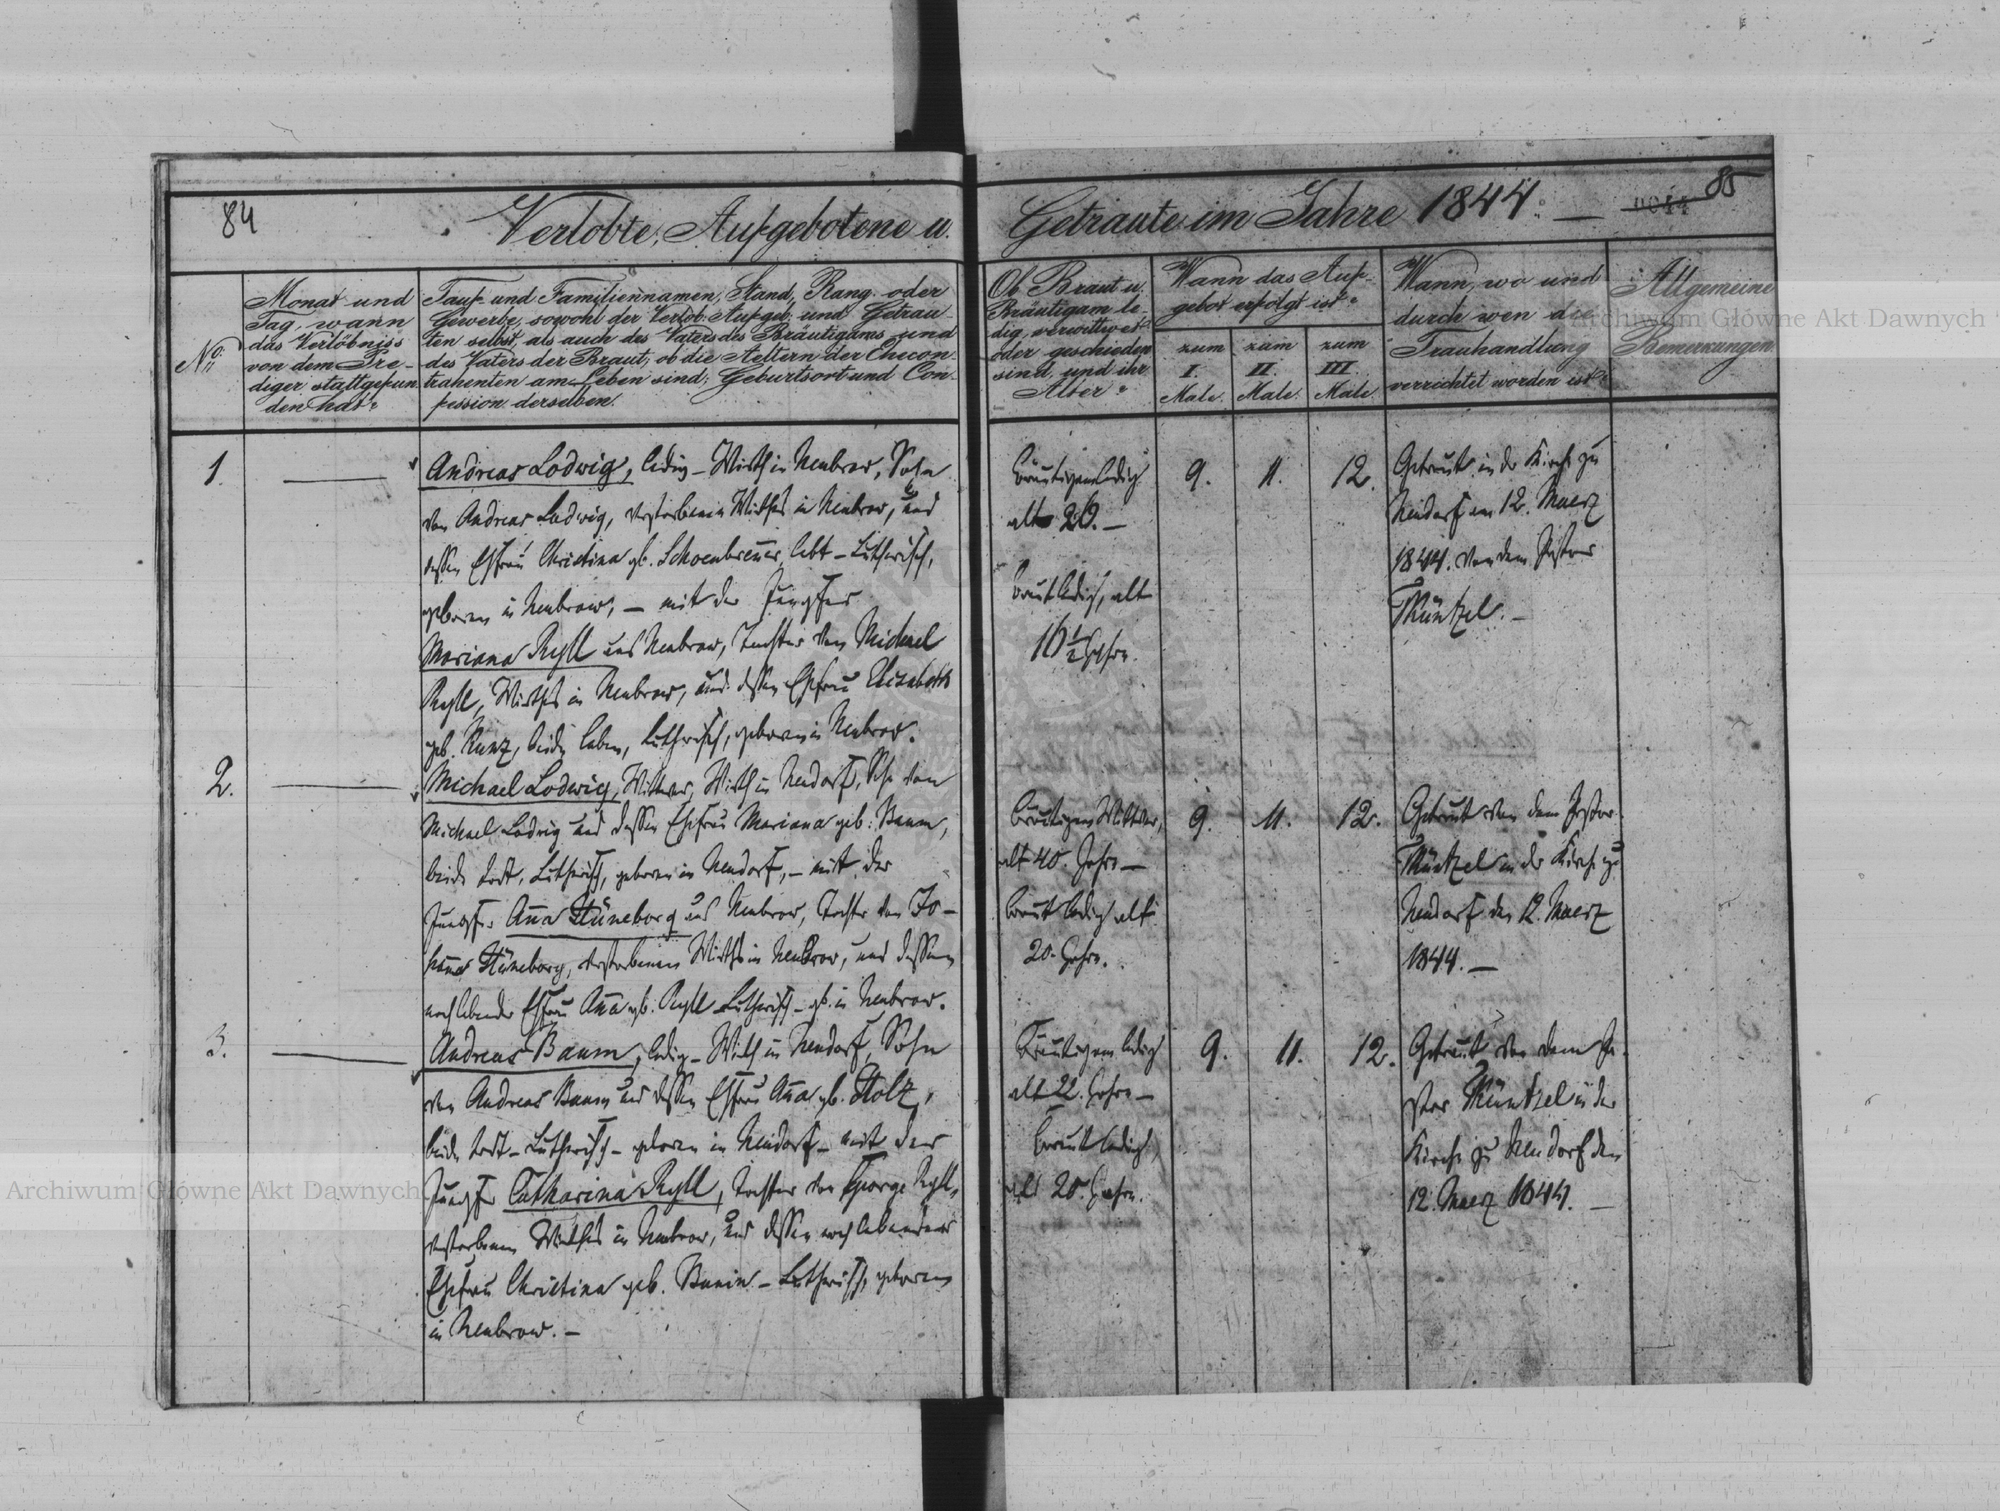 84
Verlobte, Aufgebotene u.
Getraute im Jahre 1844. —
85
No:
Monat und
Tag, wann
das Verlöbniss
von dem Pre-
diger stattgefun
den hat?
Tauf- und Familiennamen, Stand, Rang oder
Gewerbe, sowohl der Verlob: Aufgeb: und Getrau-
ten selbst, als auch des Vaters des Bräutigams und
des Vaters der Braut; ob die Aeltern der Checon-
trahenten am Leben sind; Geburtsort und Con-
fession derselben.
Ob Braut u.
Bräutigam le-
dig, verwittwet
oder geschieden
sind, und ihr
Alter?
Wann das Auf-
gebot erfolgt ist?
zum
I.
Male.
zum
II.
Male.
zum
III.
Male.
Wann, wo und
durch wen die
Trauhandlung
verrichtet worden ist?
Allgemeine
Bemerkungen
1.
Andreas Lodwig, ledig – Wirth in Neubrow, Sohn
von Andreas Ludwig, verstorbenen Wirthes in Neubrow, und
dessen Ehefrau Christina gb. Schoenbrenner, lebt – Lutherisch,
geboren in Neubrow, – mit der Jungfer
Mariana Ryll aus Neubrow, Tochter von Michael
Ryll, Wirthes in Neubrow, und dessen Ehefrau Elisabeth
geb. Kunz, beide leben, Lutherisch, geboren in Neubrow.
Bräutigam ledig
alt 26. —
Braut ledig, alt
16 1/2 Jahre.
9.
11.
12.
Getraut in der Kirche zu
Neudorf am 12. Maerz
1844. von dem Pastor
Müntzel. —
2.
Michael Lodwig, Wittwer, Wirth in Neudorf, Sohn von
Michael Lodwig und dessen Ehefrau Mariana geb: Baum,
beide todt, Lutherisch, geboren in Neudorf, – mit der
Jungfer Anna Hüneborg aus Neubrow, Tochter von Jo-
hann Hüneborg, verstorbenen Wirths in Neubrow, und dessen
noch lebender Ehefrau Anna gb. Ryll Lutherisch – gb. in Neubrow.
Bräutigam Wittwer,
alt 40. Jahre —
Braut ledig alt
20. Jahre.
9.
11.
12.
Getraut von dem Pastor
Müntzel in der Kirche zu
Neudorf den 12. Maerz
1844. —
3.
Andreas Baum, ledig – Wirth in Neudorf, Sohn
von Andreas Baum und dessen Ehefrau Anna gb. Stolz,
beide todt – Lutherisch – geboren in Neudorf – mit der
Jungfer Catharina Ryll, Tochter von George Ryll,
verstorbenen Wirthes in Neubrow, und dessen noch lebenden
Ehefrau Christina geb. – Lutherisch, geboren
in Neubrow. —
Bräutigam ledig
alt 22. Jahre —
Braut ledig,
alt 20. Jahre.
9.
11.
12.
Getraut von dem Pa-
stor Müntzel in der
Kirche zu Neudorf den
12. Maerz 1844. —
Archiwum Główne Akt Dawnych
Archiwum Główne Akt Dawnych